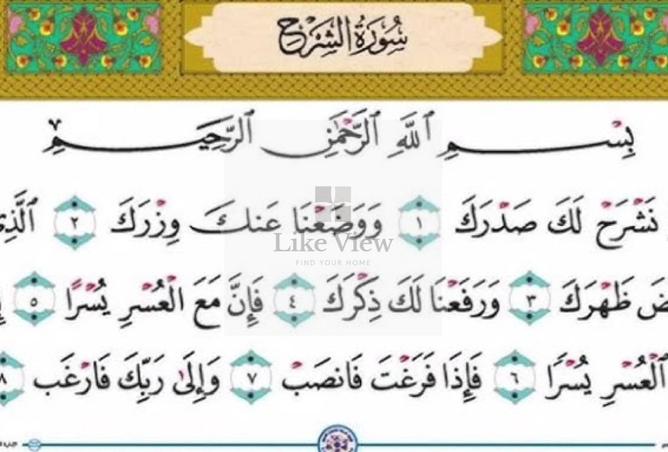 سُورَةُ الشَّرْحِ
بِسْمِ ٱللَّهِ ٱلرَّحْمَٰنِ ٱلرَّحِيمِ
نَشْرَحْ لَكَ صَدْرَكَ ١ وَوَضَعْنَا عَنكَ وِزْرَكَ ٢ ٱلَّذِى
ظَهْرَكَ ٣ وَرَفَعْنَا لَكَ ذِكْرَكَ ٤ فَإِنَّ مَعَ ٱلْعُسْرِ يُسْرًا ٥
ٱلْعُسْرِ يُسْرًا ٦ فَإِذَا فَرَغْتَ فَٱنصَبْ ٧ وَإِلَىٰ رَبِّكَ فَٱرْغَب ٨
Like View
FIND YOUR HOME